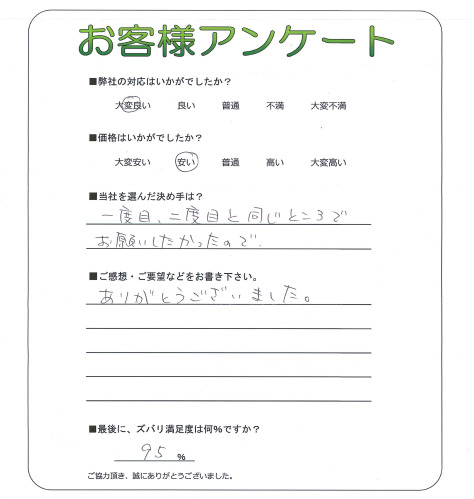 お客様アンケート
■弊社の対応はいかがでしたか？
大変良い 良い 普通 不満 大変不満
■価格はいかがでしたか？
大変安い 安い 普通 高い 大変高い
■当社を選んだ決め手は？
一度目、二度目と同じところで
お願いしたかったので、
■ご感想・ご要望などをお書き下さい。
ありがとうございました。
■最後に、ズバリ満足度は何%ですか？
95 %
ご協力頂き、誠にありがとうございました。